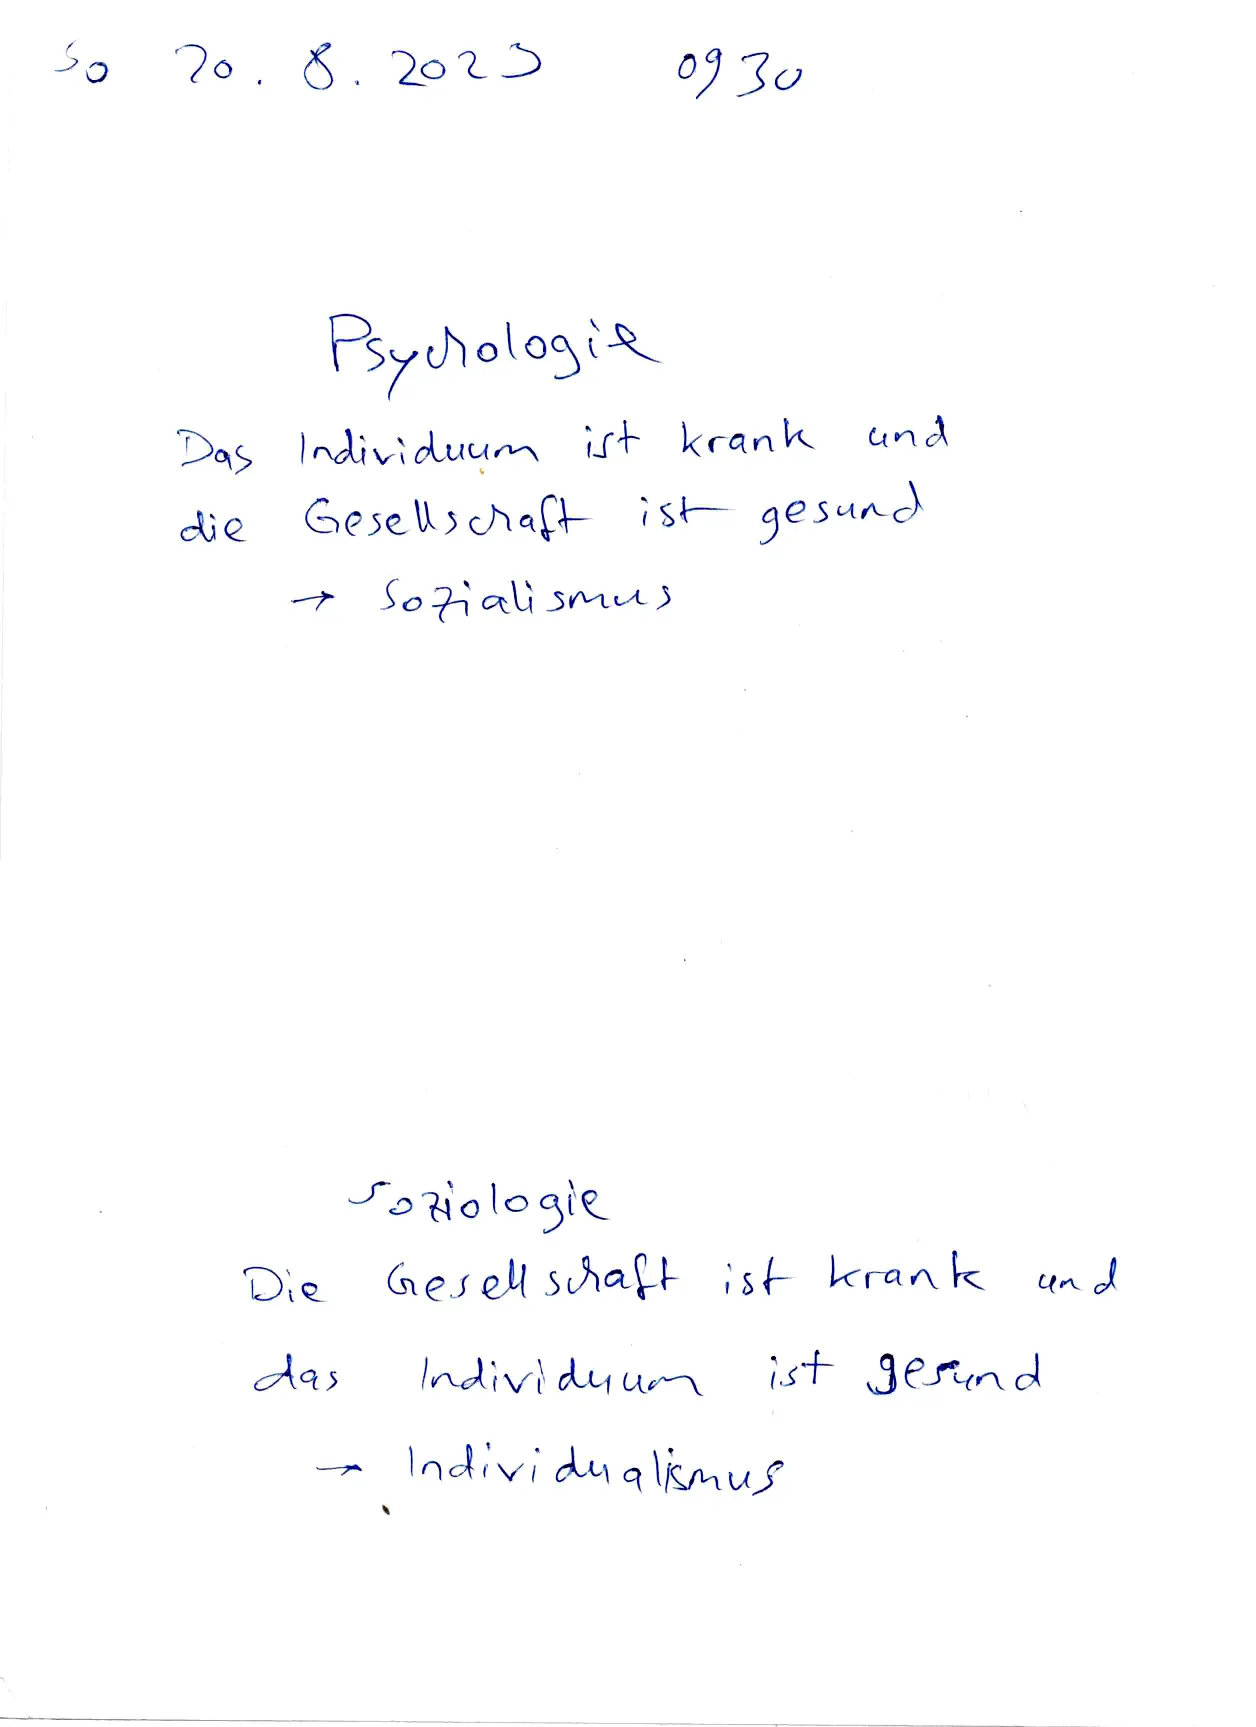 So 20.8.2023 0930
Psychologie
Das Individuum ist krank und
die Gesellschaft ist gesund
→ Sozialismus
Soziologie
Die Gesellschaft ist krank und
das Individuum ist gesund
→ Individualismus